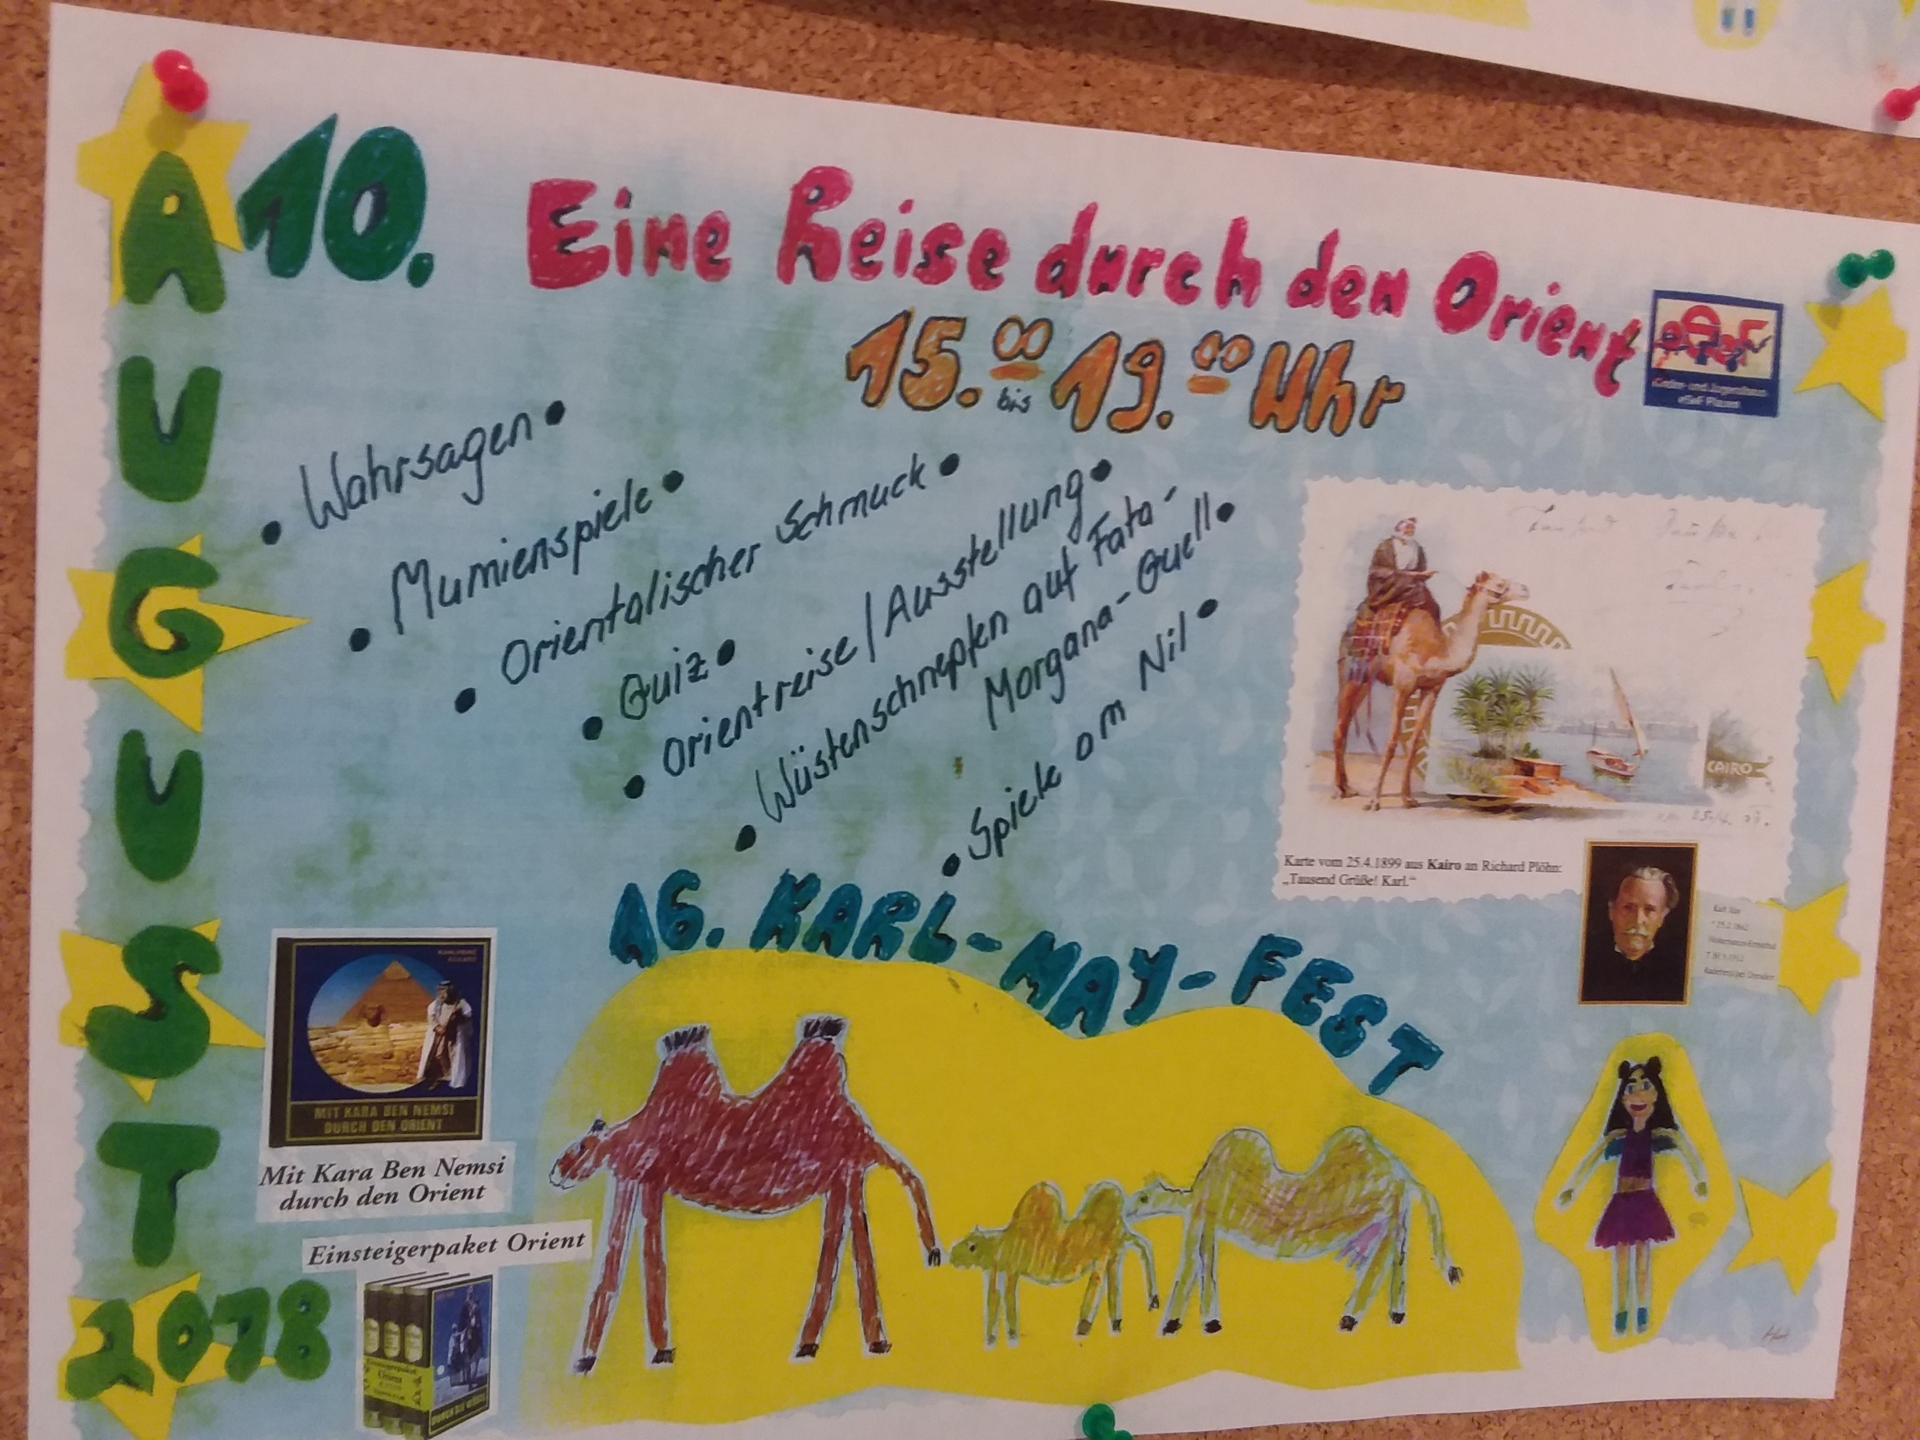 AUGUST
2018
10.
Eine Reise durch den Orient
15.00 bis 19.00 Uhr
Kinder- und Jugendhaus
eSeF Plauen
• Wahrsagen •
• Mumienspiele •
• Orientalischer Schmuck •
• Quiz •
• Orientreise / Ausstellung •
• Wüstenschnepfen auf Fata-
Morgana-Quell •
• Spiele am Nil •
CAIRO
Karte vom 25.4.1899 aus Kairo an Richard Plöhn:
„Tausend Grüße! Karl.“
Karl May
16. KARL-MAY-FEST
MIT KARA BEN NEMSI
DURCH DEN ORIENT
Mit Kara Ben Nemsi
durch den Orient
Einsteigerpaket Orient
Einsteigerpaket
Orient